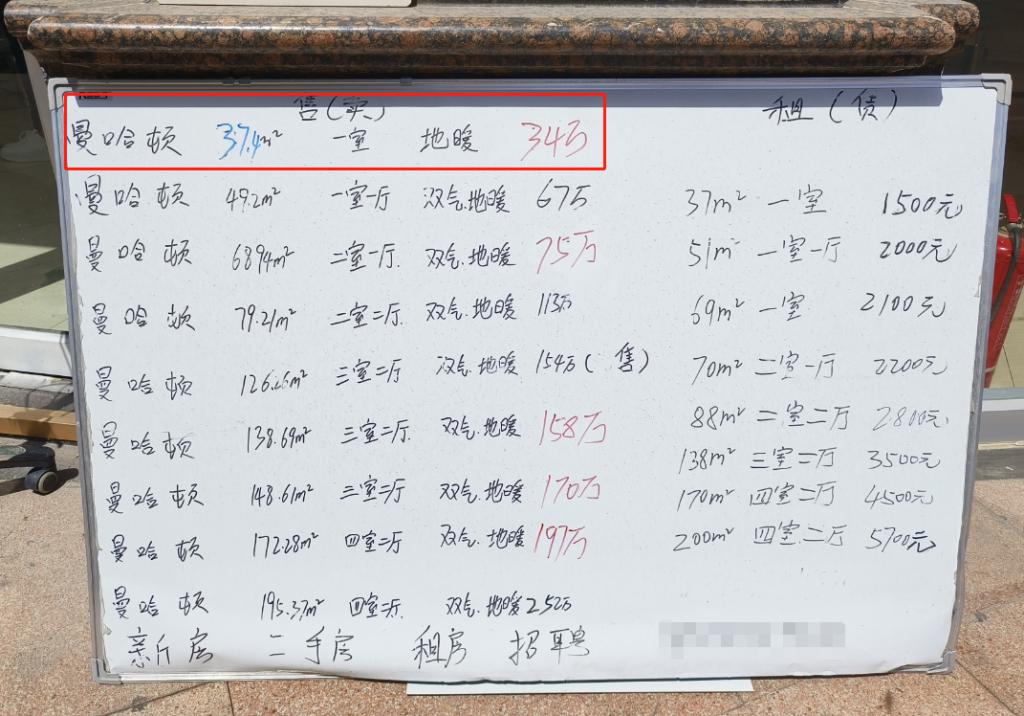 售(卖)
曼哈顿 37.4m² 一室 地暖 34万
曼哈顿 49.2m² 一室一厅 双气.地暖 67万
曼哈顿 68.94m² 二室一厅. 双气.地暖 75万
曼哈顿 79.21m² 二室二厅. 双气.地暖 113万
曼哈顿 126.26m² 三室二厅 双气.地暖 154万(售)
曼哈顿 138.69m² 三室二厅. 双气.地暖 158万
曼哈顿 148.61m² 三室二厅 双气.地暖 170万
曼哈顿 172.28m² 四室二厅 双气.地暖 197万
曼哈顿 195.37m² 四室二厅. 双气.地暖 252万
租(债)
37m² 一室 1500元
51m² 一室一厅 2000元
69m² 一室 2100元
70m² 二室一厅 2200元
88m² 二室二厅 2800元
138m² 三室二厅 3500元
170m² 四室二厅 4500元
200m² 四室二厅 5700元
房 二手房 租房 招聘